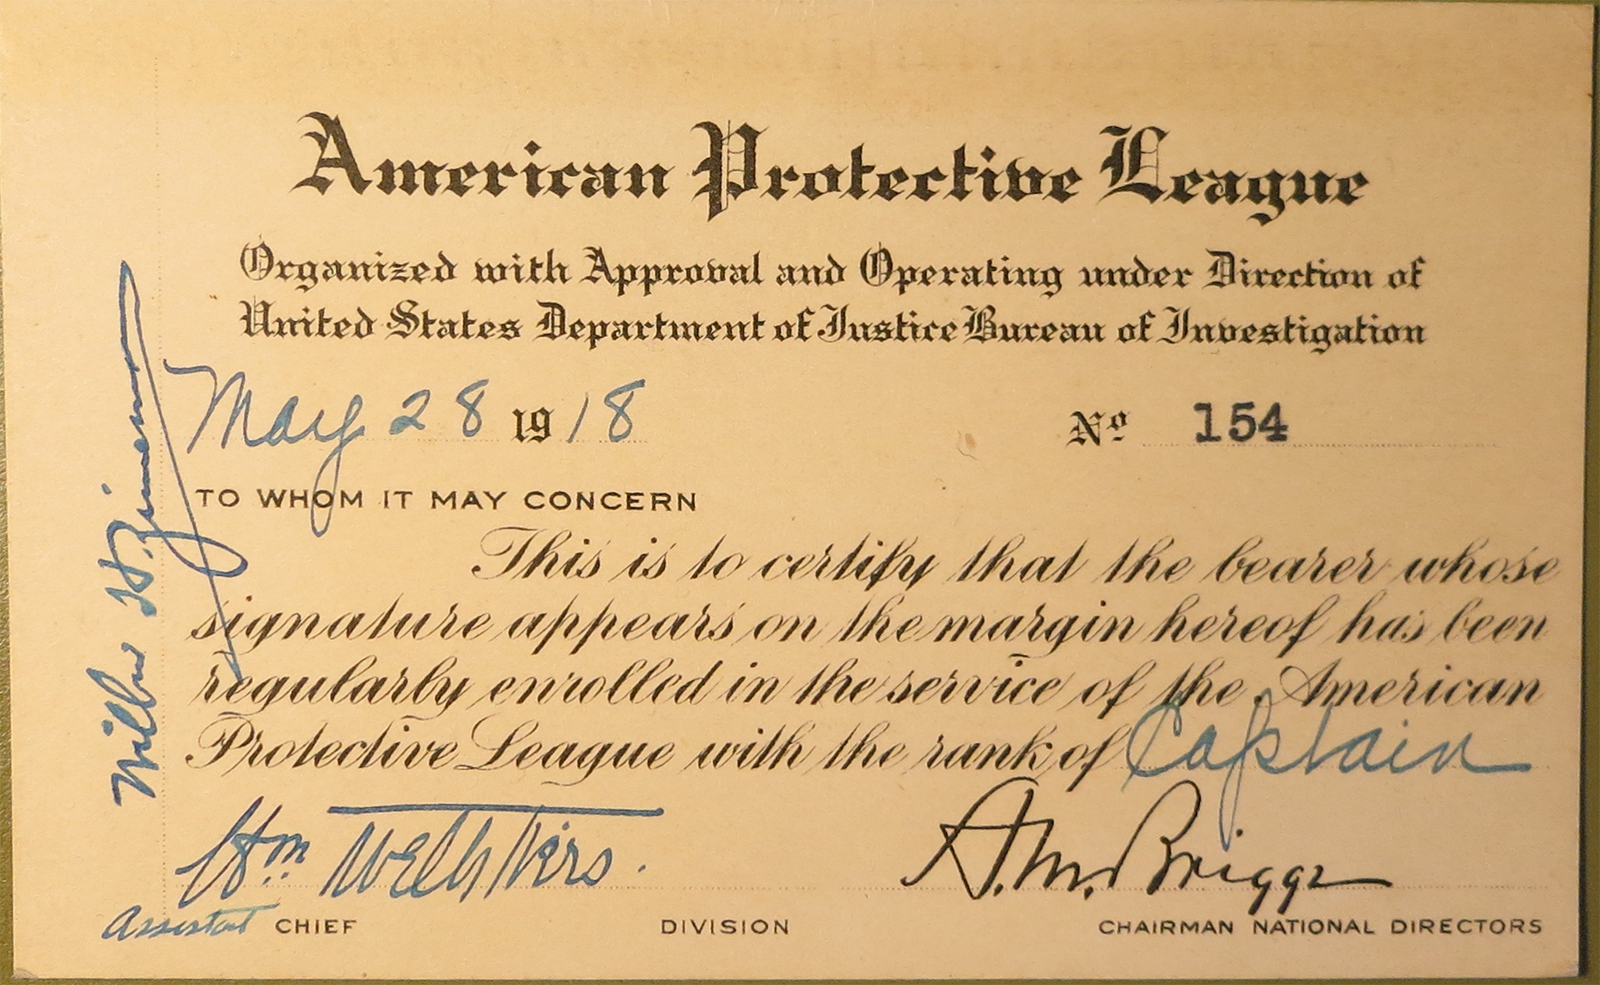 American Protective League
Organized with Approval and Operating under Direction of
United States Department of Justice Bureau of Investigation
May 28 1918 No 154
TO WHOM IT MAY CONCERN
This is to certify that the bearer whose
signature appears on the margin hereof has been
regularly enrolled in the service of the American
Protective League with the rank of Captain
Wm A. M. Briggs
Assistant CHIEF DIVISION CHAIRMAN NATIONAL DIRECTORS
H. Zimmerman